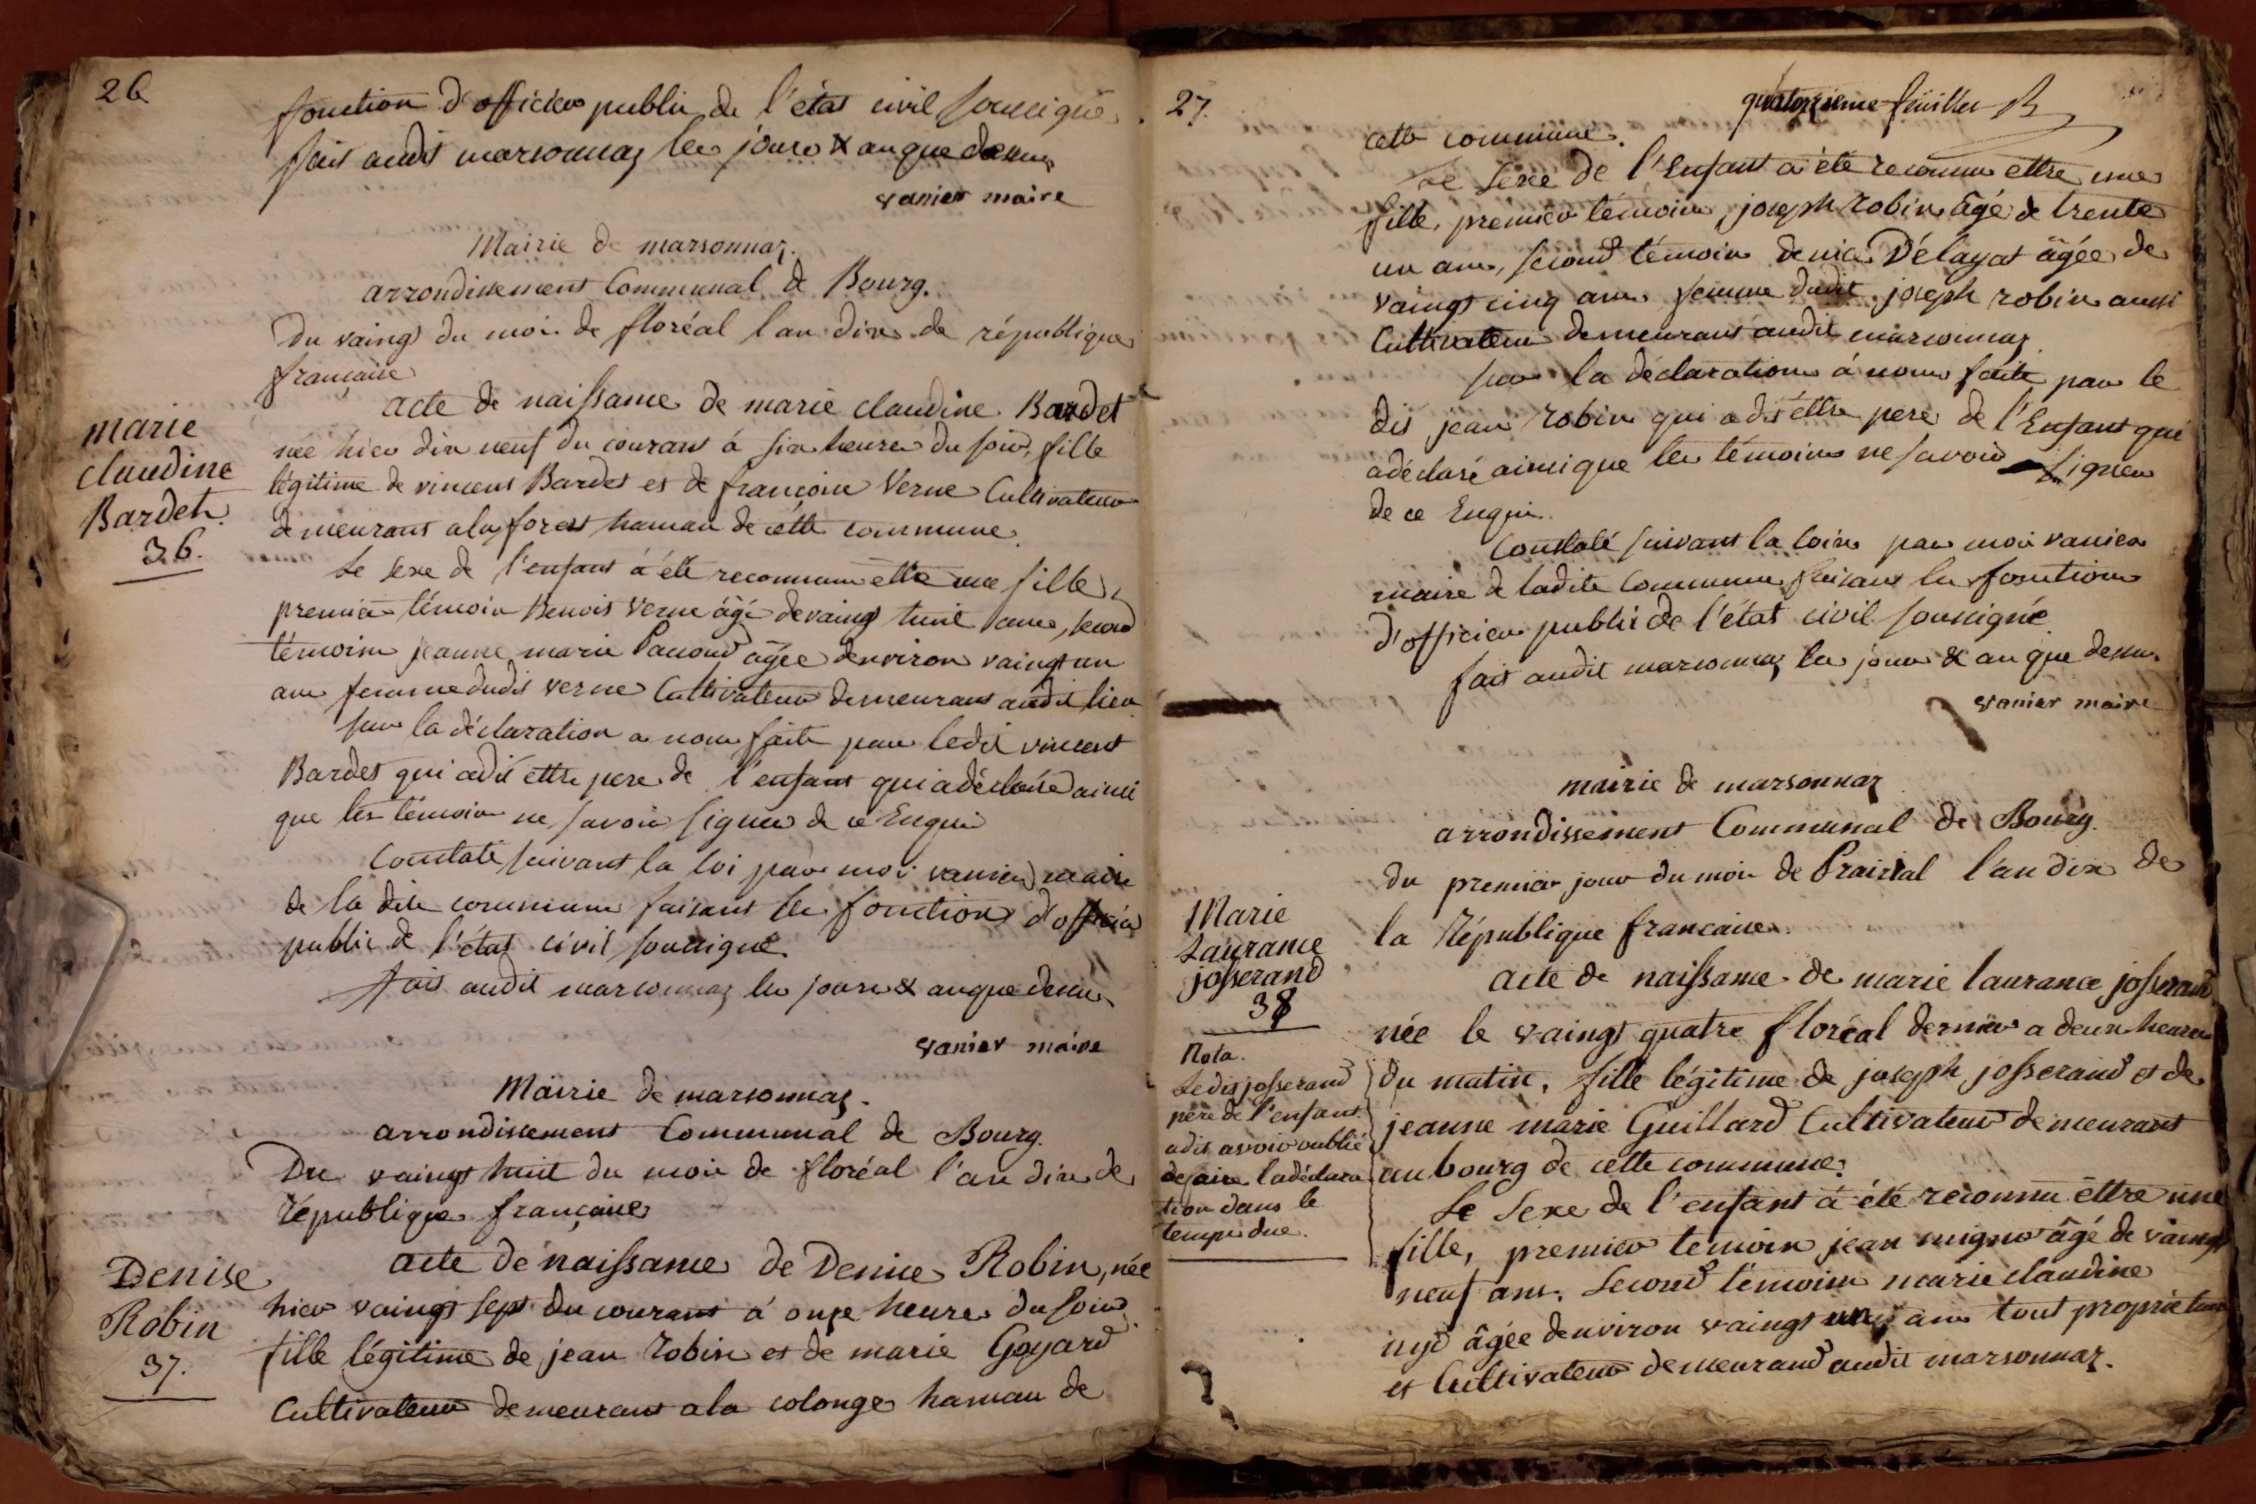 26
fonction d'officier public de l'état civil soussigné
fait audit marsonnaz les jours & an que dessus
vanier maire
Mairie de marsonnaz.
arrondissement Communal de Bourg.
Du vaingt du mois de floréal l'an dix de république
française
acte de naissance de marie claudine Bardet
née hier dix neuf du courant à six heures du soir, fille
légitime de vincent Bardet et de françoise Verne Cultivateurs
demeurans a la forest hamau de cette commune.
marie
claudine
Bardet.
36.
Le sexe de l'enfant à été reconnu ettre une fille,
premier témoin Benoit Verne âgé de vaingt huit ans, second
témoin jeanne marie Pacoud âgée denviron vaingt un
ans femme dudit verne Cultivateurs demeurans audit lieu
sur la déclaration a nous faite par ledit vincent
Bardet qui adit ettre pere de l'enfant qui adéclaré ainsi
que les témoins ne savoir signer de ce Enquis
Constaté suivant la loi par moi vanier maire
de la dite commune faisant les fonctions d'officier
public de l'état civil soussigné.
fait audit marsonnaz les jours & an que dessus
vanier maire
Mairie de marsonnaz.
arrondissement Communal de Bourg.
Du vaingt huit du mois de floréal l'an dix de
république française
acte de naissance de Denise Robin, née
hier vaingt sept du courant à onze heures du soir,
fille légitime de jean Robin et de marie Goyard
Cultivateurs demeurans a la colonge hamau de
Denise
Robin
37.
27.
quatorzieme feuillet
cette commune.
Le Sexe de l'Enfant a été reconnu ettre une
fille, premier témoin, joseph Robin âgé de trente
un ans, second témoin denise Délayat âgée de
vaingt cinq ans femme dudit joseph robin aussi
Cultivateurs demeurans audit marsonnaz
sur la déclaration à nous faite par le
dit jean Robin qui a dit éttre pere de l'Enfant qui
adéclaré ainsi que les témoins ne savoir signer
de ce Enquis.
Constaté suivant la loix par moi vanier
maire de ladite Commune faisant les fonctions
d'officier public de l'état civil soussigné
fait audit marsonnaz les jours & an que dessus
vanier maire
mairie de marsonnaz
arrondissement Communal de Bourg.
du premier jour du mois de Prairial l'an dix de
la République francaise.
acte de naissance de marie laurance josserand
née le vaingt quatre floréal dernier a deux heures
du matin, fille légitime de joseph josserand et de
jeanne marie Guillard Cultivateurs demeurans
au bourg de cette commune.
Marie
Laurance
josserand
38
Nota.
Ledit josserand
pere de l'enfant
adit avoir oublié
defaire ladéclara
tion dans le
temps due.
Le Sexe de l'enfant à été reconnu êttre une
fille, premier temoin jean migno âgé de vaingt
neuf ans, Second témoin marie claudine
âgée denviron vaingt un ans tout proprietaires
et Cultivateurs demeurand audit marsonnaz.